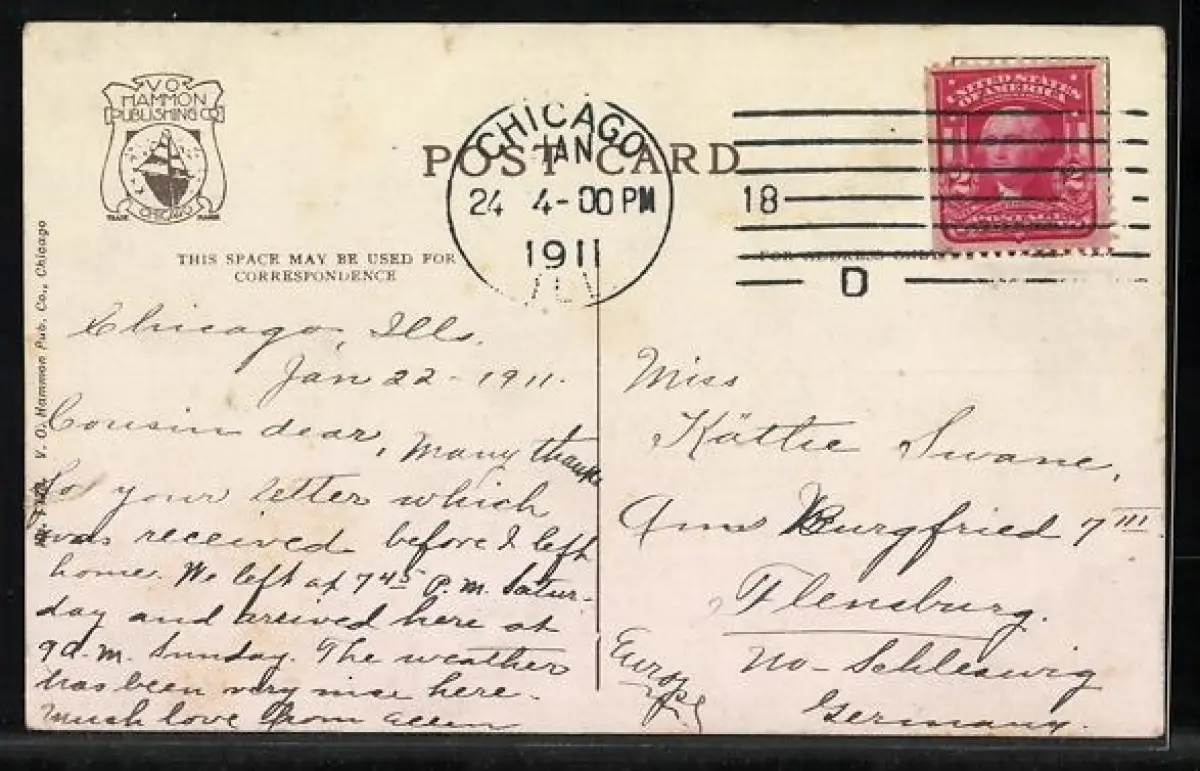 V O
HAMMON
PUBLISHING CO
CHICAGO
TRADE MARK
POST CARD
CHICAGO
JAN
24 4-00 PM
1911
ILL
18
D
UNITED STATES
OF AMERICA
2 2
POSTAGE
THIS SPACE MAY BE USED FOR
CORRESPONDENCE
FOR ADDRESS ONLY
V. O. Hammon Pub. Co., Chicago
Chicago, Ills.
Jan 22 - 1911.
Cousin dear, Many thanks
for your letter which
was received before I left
home. We left at 7 45 P.M. Satur-
day and arrived here at
9 a.m. Sunday. The weather
has been very nice here.
Much love from
Miss
Kättie Swane,
Am Burgfried 7 III
Flensburg.
No - Schleswig
Germany.
Europe